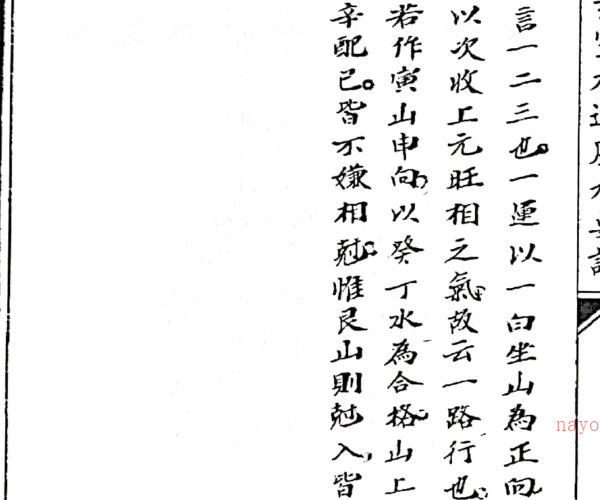 言一二三也。一運以一白坐山為正向
以次收上元旺相之氣故云一路行也
若作寅山申向以癸丁水為合格山上
辛配巳。皆不嫌相尅惟艮山則尅入皆
nayo